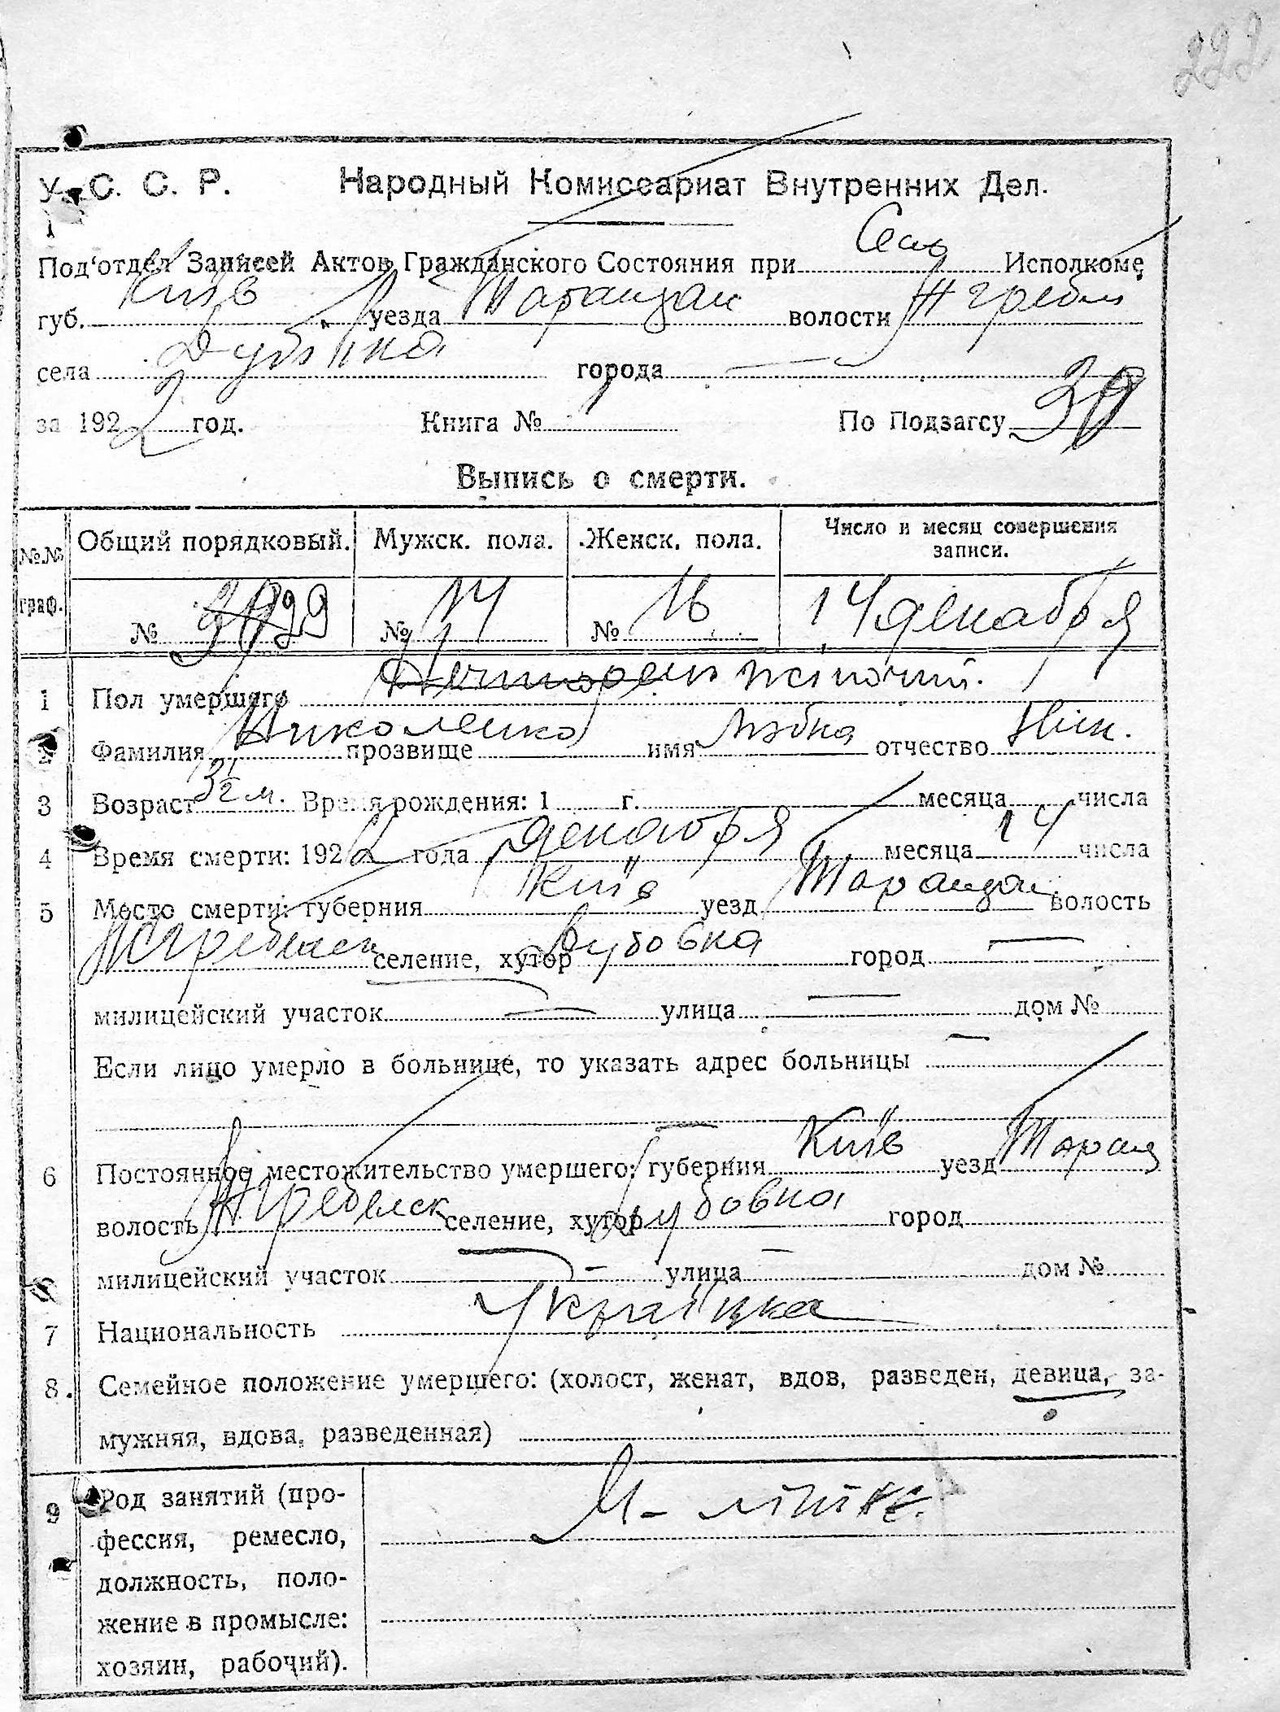 222
У. С. С. Р. Народный Комиссариат Внутренних Дел.
Под'отдел Записей Актов Гражданского Состояния при Исполкоме
губ. Київ уезда Таращан волости
села Дубівка города —
за 1922 год. Книга № По Подзагсу
Выпись о смерти.
№№ граф. Общий порядковый. Мужск. пола. Женск. пола. Число и месяц совершения записи.
№ 29 № 14 № 16 14 декабря
1 Пол умершего жіночий.
2 Фамилия Николенко прозвище имя отчество Нік.
3 Возраст 3½ м. Время рождения: 1 г. месяца числа
4 Время смерти: 1922 года декабря месяца 14 числа
5 Место смерти: губерния Київ уезд Таращан волость
селение, хутор Дубовка город —
милицейский участок — улица — дом №
Если лицо умерло в больнице, то указать адрес больницы —
6 Постоянное местожительство умершего: губерния Київ уезд Таращ
волость селение, хутор Дубовка город
милицейский участок — улица — дом №
7 Национальность Українка
8. Семейное положение умершего: (холост, женат, вдов, разведен, девица, за-
мужняя, вдова, разведенная)
9 Род занятий (про-
фессия, ремесло,
должность, поло-
жение в промысле:
хозяин, рабочий).
М-літнє.